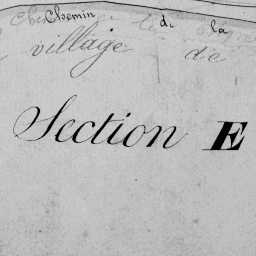 Chemin de la
village de
Section E